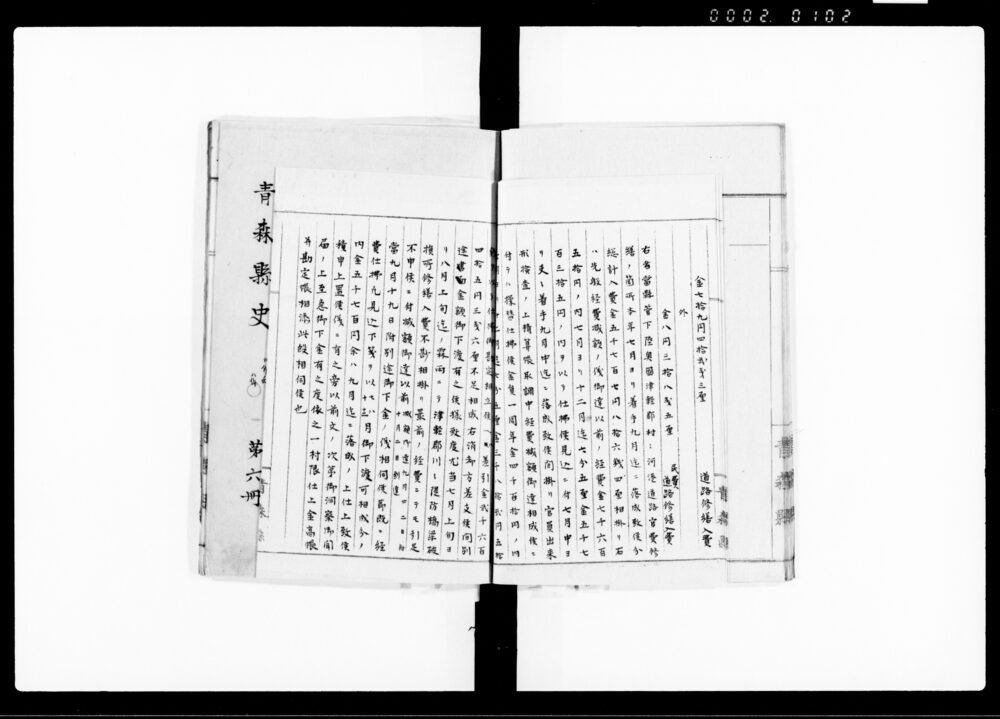 0002. 0102
金七拾九円四拾弐戔三厘
道路修繕入費
外
金八円三拾八戔五厘
民費
道路修繕入費
右者當縣管下陸奥國津軽郡村々河港道路官費修
繕ノ箇所本年七月ヨリ着手九月迄ニ落成致候分
総計入費金五千七百七円八拾六戔四厘相掛リ右
ハ先般経費減額ノ儀御達以前ノ経費金七千六百
五拾円ノ内七月ヨリ十二月迄七分五厘金五千七
百三拾五円ノ内ヲ以テ仕拂候見込ニ付七月中ヨ
リ夫々着手九月中迄ニ落成致候間掛リ官員出来
形検査ノ上精算帳取調中経費減額御達相成候ニ
付テハ操替仕拂候金隻一周年金四千百拾円ノ内
四拾五円三戔六厘不足相成右消却方差支候間別
途書面金額御下渡有之候様致度尤当七月上旬ヨ
リ八月上旬迄ノ霖雨ニテ津軽郡川々堤防橋梁破
損所修繕入費不尠相掛リ最前ノ経費ニテモ引足
不申候ニ付減額御達以前
當九月十九日附別途御下金ノ儀相伺候節既ニ経
費仕拂凡見込下箋ヲ以テ七八十三月御下渡可相成分ノ
内金五千七百円余ハ九月迄ニ落成ノ上仕上致候
積申上置候儀ニ有之旁以前文ノ次第御洞察御聞
届ノ上至急御下金有之度依之一村限仕上金高帳
并勘定帳相添此段相伺候也
青森縣史
第六冊